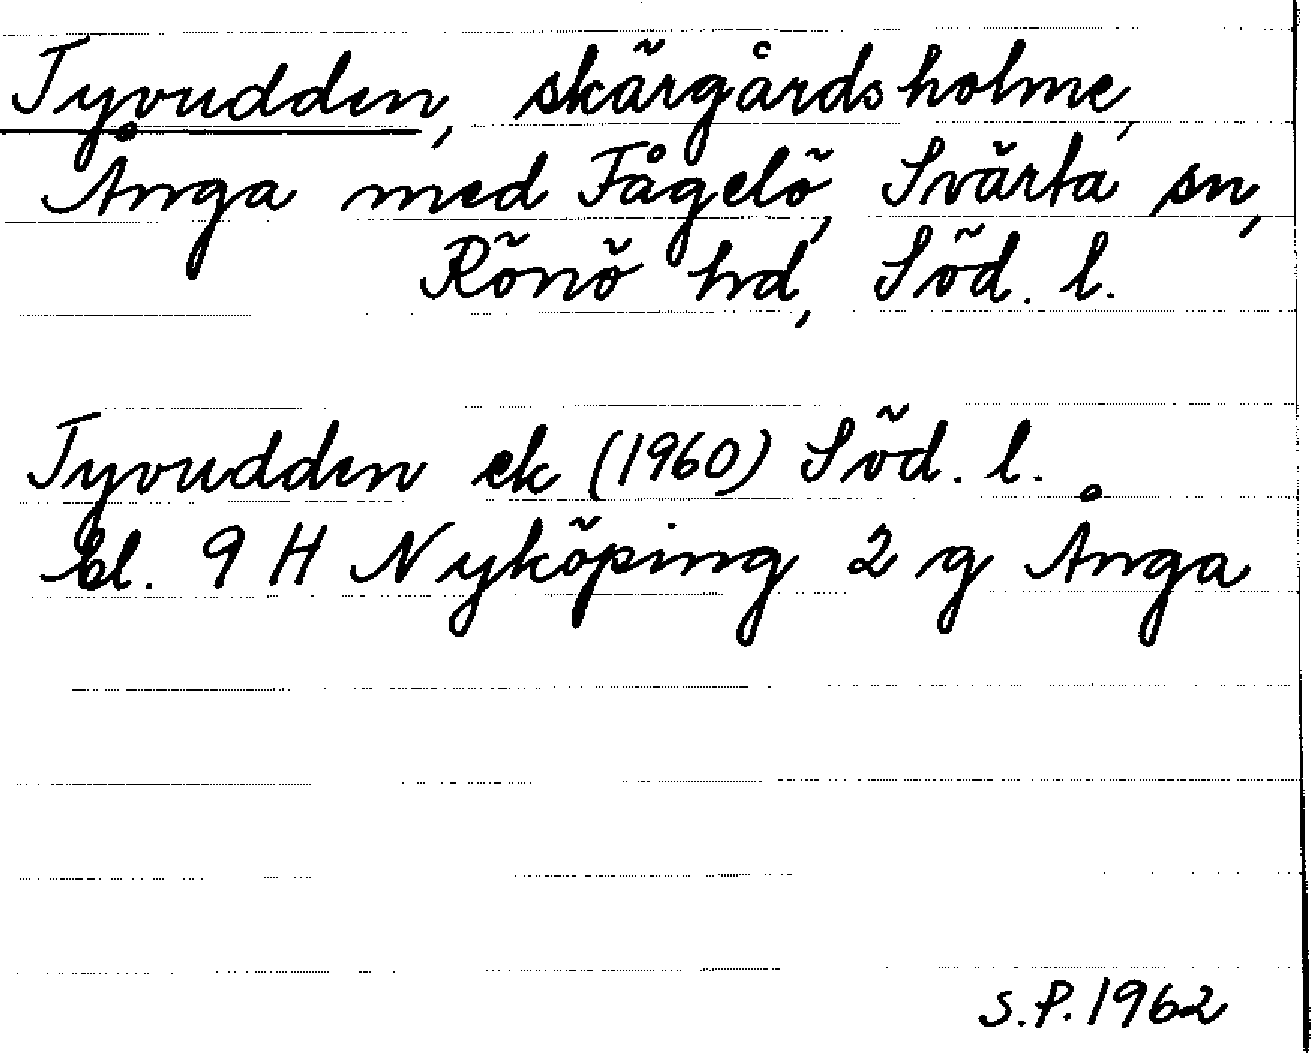 Tyvudden, skärgårdsholme,
Ånga med Fågelö, Svärta sn,
Rönö hd, Söd. l.
Tyvudden ek (1960) Söd. l.
bl. 9 H Nyköping 2 g Ånga
S.P. 1962